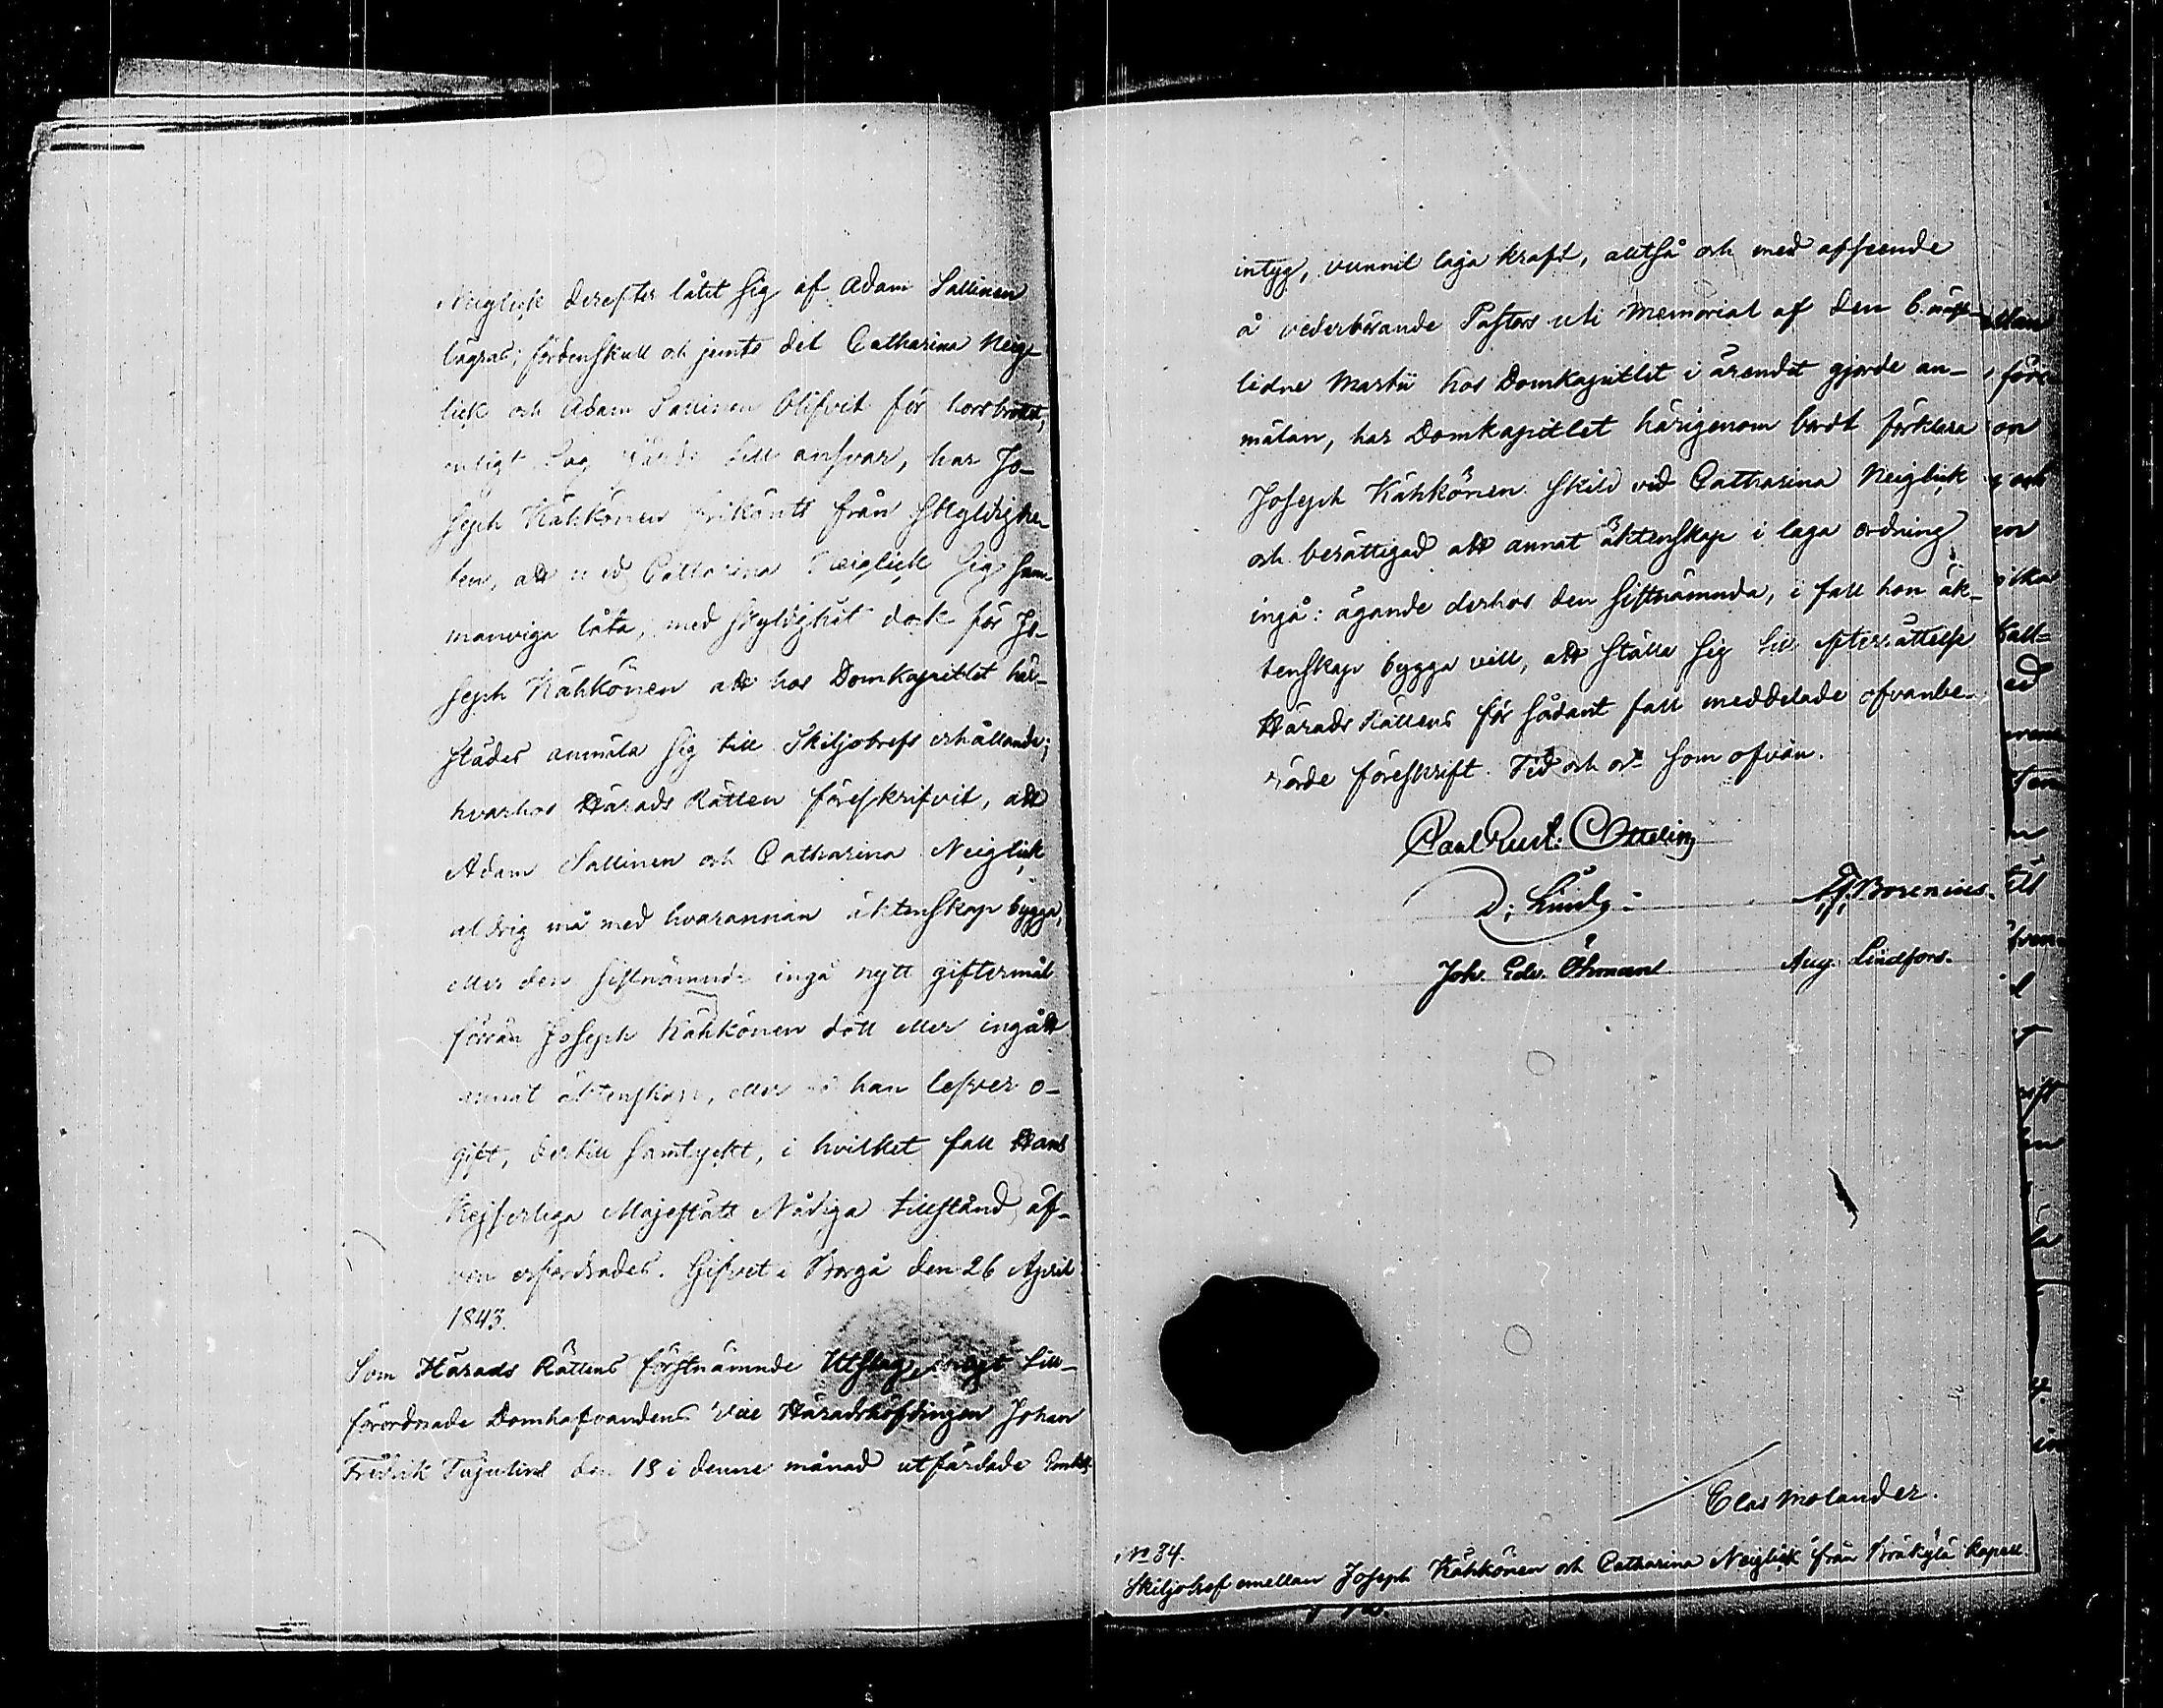 Neiglick derefter låtit sig af Adam Sallinen
lägras; fördenskull och jemte det Catharina Neig-
lick och Adam Sallinen blifvit för horsbrottet,
enligt Lag fälde till ansvar, har Jo-
seph Kähkönen frikänts från skyldighe-
ten, att med Catharina Neiglick sig sam-
manviga låta, med skyldighet dock för Jo-
seph Kähkönen att hos Domkapitlet här-
städes anmäla sig till Skiljobrefs erhållande;
hvarhos Härads Rätten föreskrifvit, att
Adam Sallinen och Catharina Neiglick
aldrig må med hvarannan äktenskap bygga,
eller den sistnämnda ingå nytt giftermål
förrän Joseph Kähkönen dött eller ingått
annat äktenskap, eller då han lefver o-
gift, dertill samtyckt, i hvilket fall Hans
Kejserliga Majestäts Nådiga tillstånd äf-
ven erfordrades. Gifvet i Borgå den 26 April
1843.
Som Härads Rättens förstnämnde Utslag, enligt till-
förordnade Domhafvandens Vice Häradshöfdingen Johan
Fredrik Tujulins den 18 i denne månad utfärdade
intyg, vunnit laga kraft, alltså och med afseende
å vederbörande Pastors uti Memorial af den 6 näst-
lidne Martii hos Domkapitlet i ärendet gjorde an-
mälan, har Domkapitlet härigenom bordt förklara
Joseph Kähkönen skild vid Catharina Neiglick
och berättigad att annat äktenskap i laga ordning
ingå: ägande derhos den sistnämnda, i fall hon äk-
tenskap bygga vill, att ställa sig till efterrättelse
Härads Rättens för sådant fall meddelade ofvanbe-
rörde föreskrift. Tid och ort som ofvan.
Carl Gust. Ottelin
A. J. Borenius.
Joh. Edv. Öhmann Aug. Lindfors.
Clas Molander.
No 34.
Skiljobref emellan Joseph Kähkönen och Catharina Neiglick från Bråkylä Kapell.